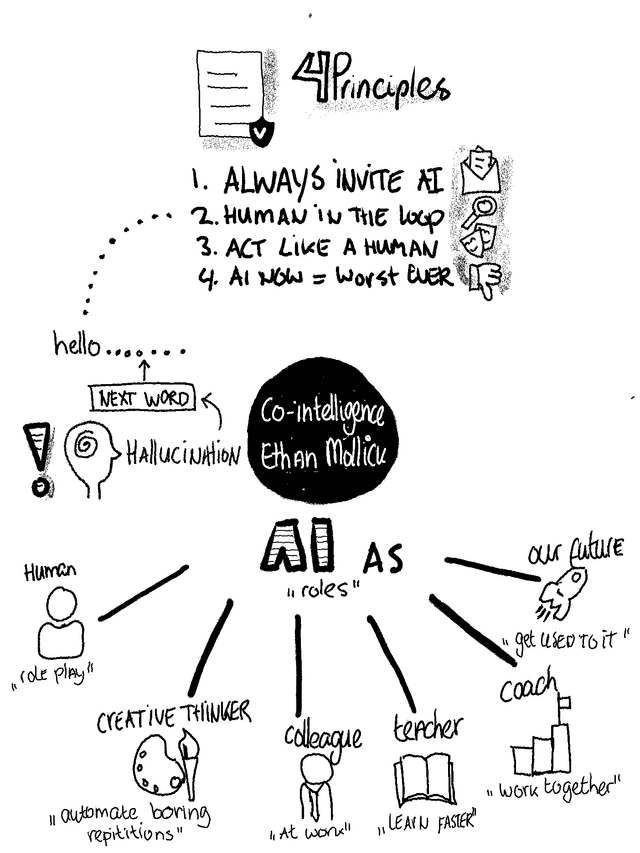 4 Principles
1. ALWAYS INVITE AI
2. HUMAN IN THE LOOP
3. ACT LIKE A HUMAN
4. AI NOW = WORST EVER
hello.........
NEXT WORD
HALLUCINATION
Co-intelligence
Ethan Mollick
AI AS
„roles"
Human
„role play"
CREATIVE THINKER
„automate boring
repititions"
colleague
„At work"
teacher
„LEARN FASTER"
coach
„work together"
our future
„get USED TO IT"